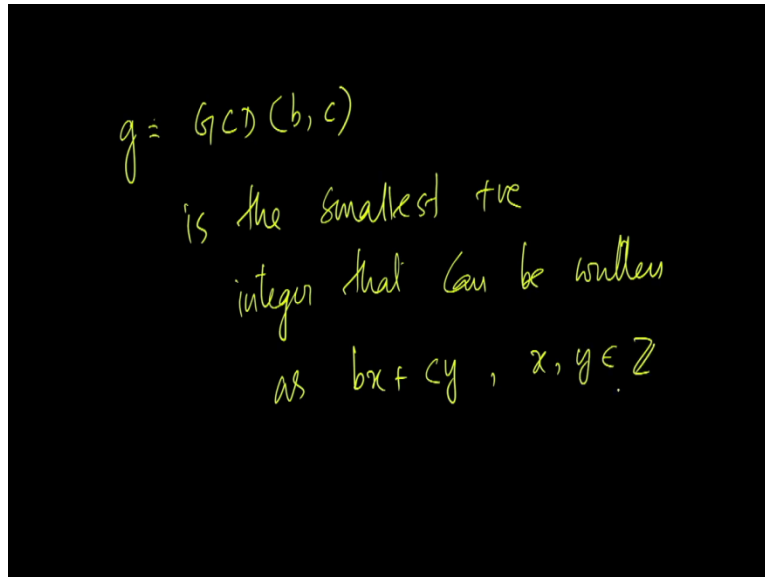 g = GCD (b, c)
is the smallest +ve
integer that can be written
as bx + cy , x, y ∈ ℤ